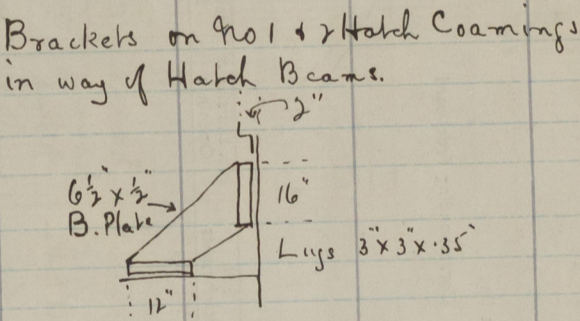 Brackets on No 1 & 2 Hatch Coamings
in way of Hatch Beams.
2"
6½" x ½"
B. Plate
16"
Lugs 3" x 3" x .35"
12"